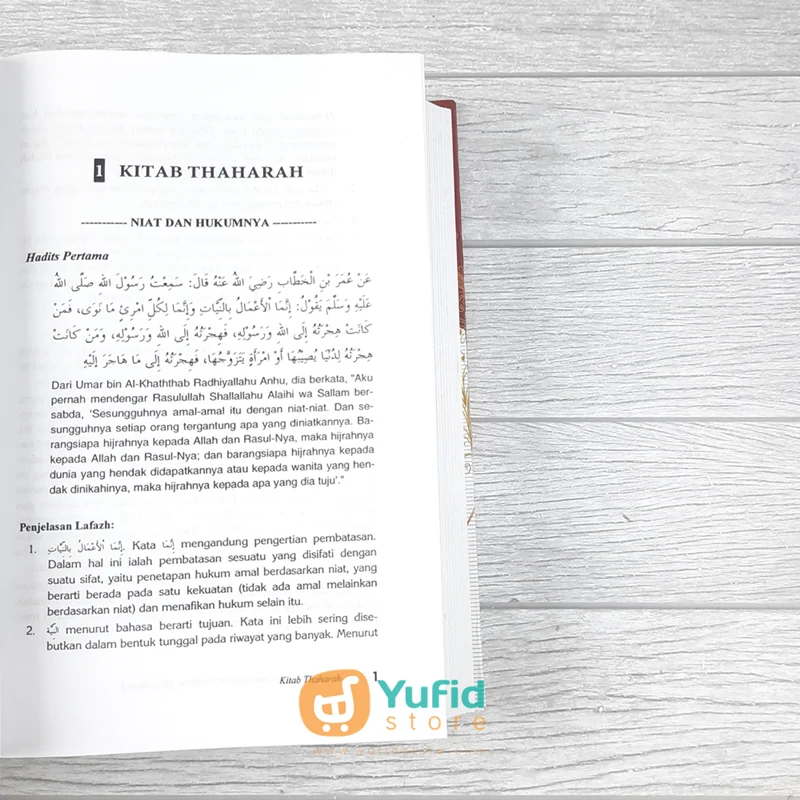 1 KITAB THAHARAH
----------- NIAT DAN HUKUMNYA -----------
Hadits Pertama
عَنْ عُمَرَ بْنِ الْخَطَّابِ رَضِيَ اللهُ عَنْهُ قَالَ: سَمِعْتُ رَسُوْلَ اللهِ صَلَّى اللهُ
عَلَيْهِ وَسَلَّمَ يَقُوْلُ: إِنَّمَا الْأَعْمَالُ بِالنِّيَّاتِ وَإِنَّمَا لِكُلِّ امْرِئٍ مَا نَوَى، فَمَنْ
كَانَتْ هِجْرَتُهُ إِلَى اللهِ وَرَسُوْلِهِ، فَهِجْرَتُهُ إِلَى اللهِ وَرَسُوْلِهِ، وَمَنْ كَانَتْ
هِجْرَتُهُ لِدُنْيَا يُصِيْبُهَا أَوْ امْرَأَةٍ يَتَزَوَّجُهَا، فَهِجْرَتُهُ إِلَى مَا هَاجَرَ إِلَيْهِ
Dari Umar bin Al-Khaththab Radhiyallahu Anhu, dia berkata, "Aku
pernah mendengar Rasulullah Shallallahu Alaihi wa Sallam ber-
sabda, 'Sesungguhnya amal-amal itu dengan niat-niat. Dan se-
sungguhnya setiap orang tergantung apa yang diniatkannya. Ba-
rangsiapa hijrahnya kepada Allah dan Rasul-Nya, maka hijrahnya
kepada Allah dan Rasul-Nya; dan barangsiapa hijrahnya kepada
dunia yang hendak didapatkannya atau kepada wanita yang hen-
dak dinikahinya, maka hijrahnya kepada apa yang dia tuju'."
Penjelasan Lafazh:
1. إِنَّمَا الْأَعْمَالُ بِالنِّيَّاتِ. Kata إِنَّمَا mengandung pengertian pembatasan.
Dalam hal ini ialah pembatasan sesuatu yang disifati dengan
suatu sifat, yaitu penetapan hukum amal berdasarkan niat, yang
berarti berada pada satu kekuatan (tidak ada amal melainkan
berdasarkan niat) dan menafikan hukum selain itu.
2. النِّيَّةُ menurut bahasa berarti tujuan. Kata ini lebih sering dise-
butkan dalam bentuk tunggal pada riwayat yang banyak. Menurut
Kitab Thaharah 1
Yufid
store